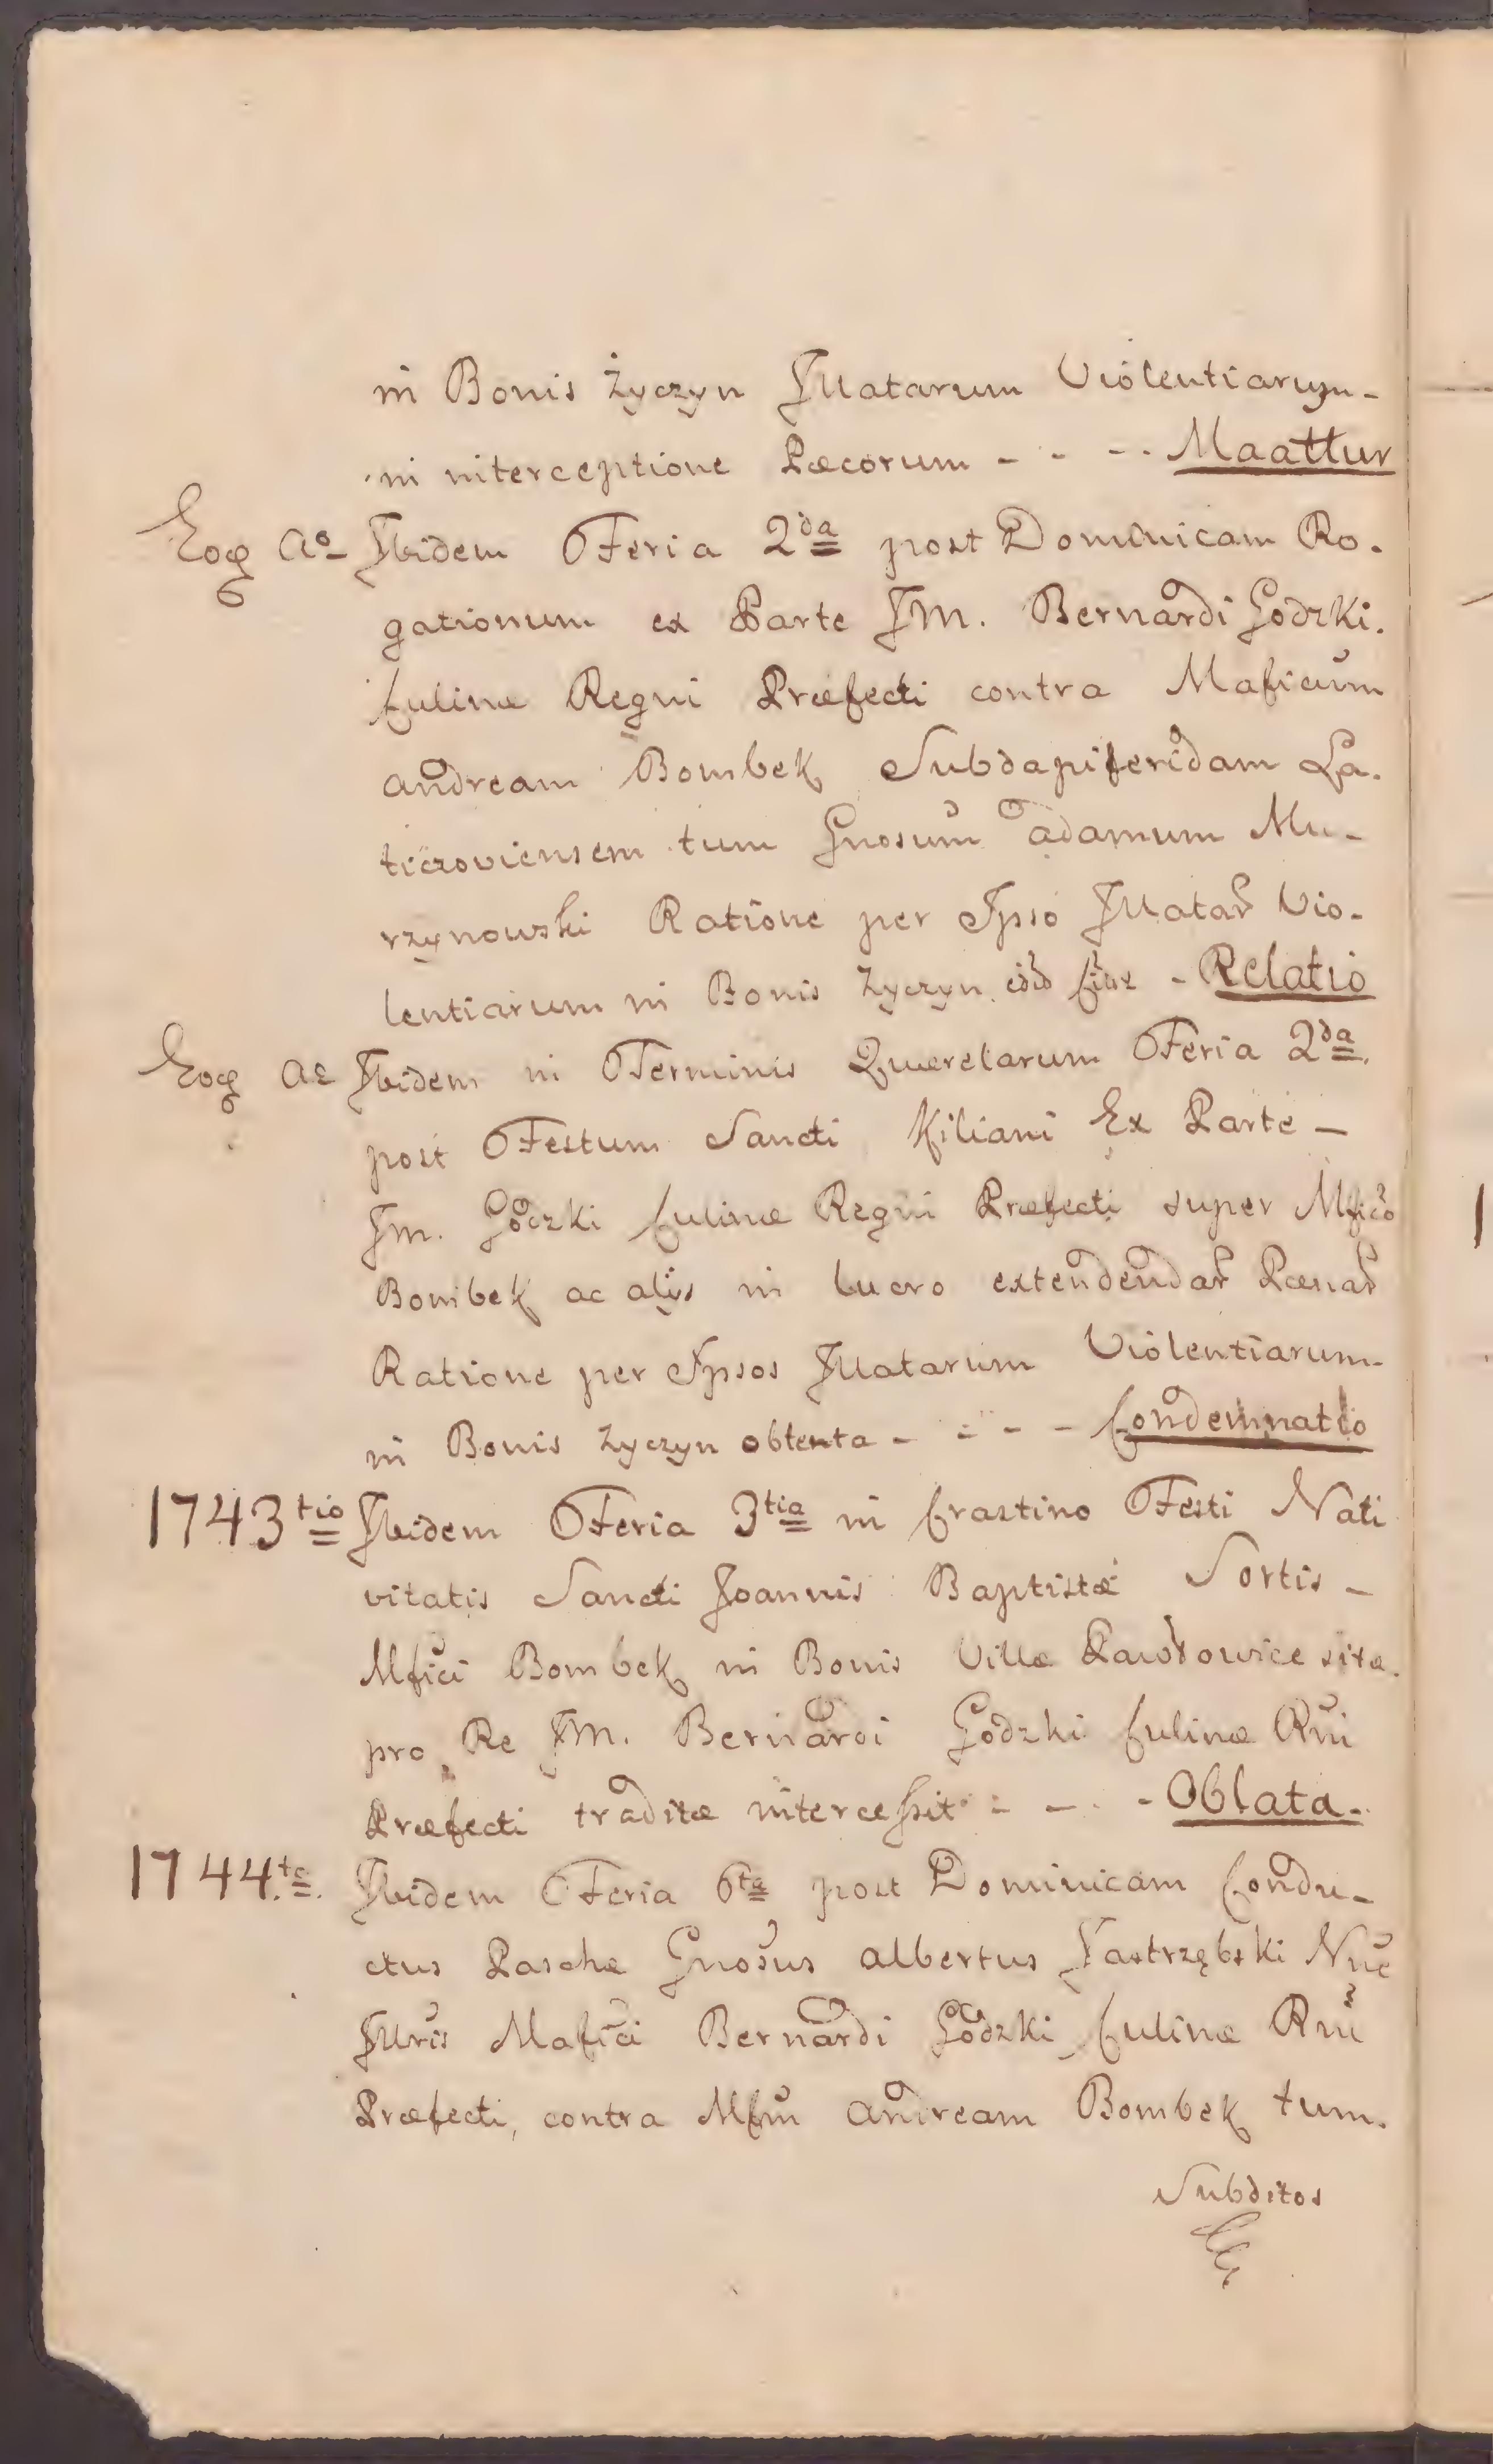 in Bonis Życzyn Illatarum Violentiarum -
in interceptione Pæcorum - - - - Maattur
Eoq Ao Ibidem Feria 2da post Dominicam Ro-
gationum ex Parte JM. Bernardi Godzki.
Culinæ Regni Præfecti contra Maficum
Andream Bombek Subdapiferidam La-
ticzoviensem tum Gnosum Adamum Mu-
rzynowski Ratione per Ipso Illatar Vio-
lentiarum in Bonis Życzyn - Relatio
Eoq Ao Ibidem in Terminis Querelarum Feria 2da
post Festum Sancti Kiliani Ex Parte -
JM. Godzki Culinæ Regni Præfecti super Mfico
Bombek ac alijs in lucro extendendar Pænar
Ratione per Ipsos Illatarum Violentiarum
in Bonis Życzyn obtenta - - - - Condemnatio
1743tio Ibidem Feria 3tia in Crastino Festi Nati
vitatis Sancti Joannis Baptistæ Sortis -
Mfici Bombek in Bonis Villæ Pawłowice sitæ
pro Re JM. Bernardi Godzki Culinæ Rni
Præfecti traditæ intercessit - - - - Oblata.
1744.to. Ibidem Feria 6ta post Dominicam Condu-
ctus Paschæ Gnosus Albertus Jastrzębski Nne
Illris Mafici Bernardi Godzki Culinæ Rni
Præfecti, contra Mfm Andream Bombek tum.
Subditos